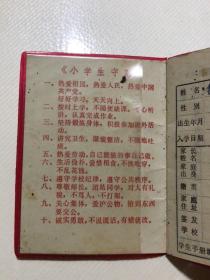 《小学生守
一、热爱祖国，热爱人民，热爱中国
共产党。
好好学习，天天向上。
二、按时上学，不随便缺课。专心听
讲，认真完成作业。
三、坚持锻炼身体，积极参加课外活
动。
四、讲究卫生，服装整洁，不随地吐
痰。
五、热爱劳动，自己能做的事自己做。
六、生活俭朴，爱惜粮食，不挑吃穿，
不乱花钱。
七、遵守学校纪律，遵守公共秩序。
八、尊敬师长，团结同学，对人有礼
貌，不骂人，不打架。
九、关心集体，爱护公物，拾到东西
要交公。
十、诚实勇敢，不说谎话，有错就改。
姓名
性别
出生年月
入学日期
学生手册